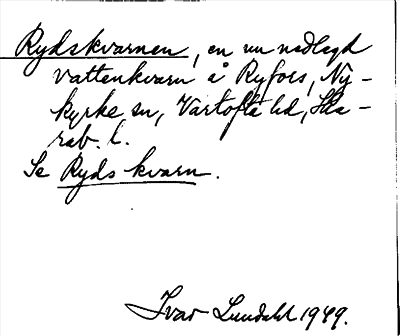 Rydskvarnen, en nu nedlagd
vattenkvarn å Ryfors, Ny-
kyrke sn, Vartofta hd, Ska-
rab. l.
Se Ryds kvarn.
Ivar Lundahl 1949.